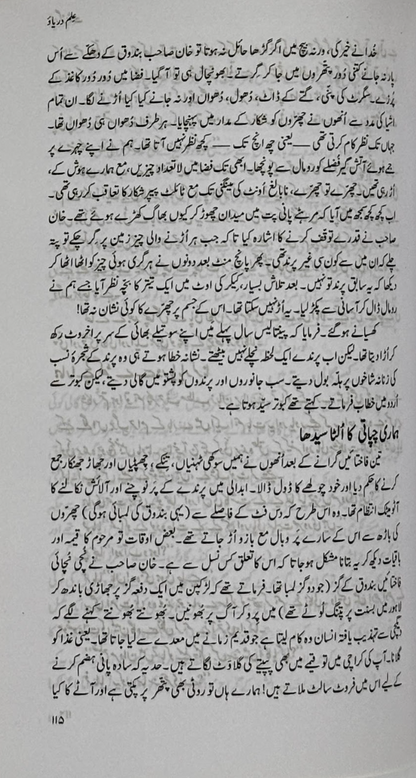 علم دریاؤ
خدا نے خیر کی، ورنہ بیچ میں اگر گڑھا حائل نہ ہوتا تو خان صاحب بندوق کے دھکے سے اُس
پار نہ جانے کتنی دُور پتھروں میں جا کر گرتے۔ بھونچال ہی تو آ گیا۔ فضا میں دُور دُور کاغذ کے
پرزے، سگرٹ کی پنّی، گتے کے ڈاٹ، دُھول، دُھواں اور نہ جانے کیا کیا اُڑنے لگا۔ ان تمام
اشیا کی مدد سے اُنھوں نے چھرّوں کو شکار کے مدار میں پہنچایا۔ ہر طرف دُھواں ہی دُھواں تھا۔
جہاں تک نظر کام کرتی تھی — یعنی چھ انچ تک — کچھ نظر نہیں آتا تھا۔ ہم نے اپنے چہرے پر
جمے ہوئے آتش گیر فضلے کو رومال سے پونچھا۔ ابھی تک فضا میں لاتعداد چیزیں، مع ہمارے ہوش کے،
اُڑ رہی تھیں۔ چھرّے تو چھرّے، نابالغ اُونٹ کی مینگنی تک مع ٹائلٹ پیپر شکار کا تعاقب کر رہی تھی۔
اب کچھ کچھ سمجھ میں آیا کہ مرہٹے پانی پت میں میدان چھوڑ کر کیوں بھاگ کھڑے ہوئے تھے۔ خان
صاحب نے قدرے توقف کرنے کا اشارہ کیا تاکہ جب ہر اُڑنے والی چیز زمین پر گر چکے تو پتہ
چلے کہ ان میں سے کون سی غیر پرند تھی۔ پھر پانچ منٹ بعد دونوں نے ہر گری ہوئی چیز کو اٹھا اٹھا کر
دیکھا کہ یہ سابق پرند تو نہیں۔ بعد تلاش بسیار، کیکر کی اوٹ میں ایک تیتر کا بچہ نظر آیا جسے ہم نے
رومال ڈال کر آسانی سے پکڑ لیا۔ یہ اُڑ نہیں سکتا تھا۔ اس کے جسم پر چھرّے کا کوئی نشان نہ تھا!
کھسیانے ہو گئے۔ فرمایا کہ پینتالیس سال پہلے میں اپنے سوتیلے بھائی کے سر پر اخروٹ رکھ
کر اُڑا دیتا تھا۔ لیکن اب پرندے ایک لحظہ نچلے نہیں بیٹھتے۔ نشانہ خطا ہوتے ہی وہ پرند کے شجرۂ نسب
کی زنانہ شاخوں پر ہلّہ بول دیتے۔ سب جانوروں اور پرندوں کو پشتو میں گالی دیتے، لیکن کبوتر سے
اُردو میں خطاب فرماتے۔ کہتے تھے کبوتر سیّد ہوتا ہے۔
ہماری چپاتی کا اُلٹا سیدھا
تین فاختائیں گرانے کے بعد اُنھوں نے ہمیں سوکھی ٹہنیاں، تنکے، چھپٹیاں اور جھاڑ جھنکار جمع
کرنے کا حکم دیا اور خود چولھے کا ڈول ڈالا۔ ابدالی میں پرندے کے پَر نوچنے اور آلائش نکالنے کا
آٹومیٹک انتظام تھا۔ وہ اس طرح کہ دس فٹ کے فاصلے سے (یہی بندوق کی لمبائی ہوگی) چھرّوں
کی باڑھ سے اس کے سارے پَر و بال مع بازو اُڑ جاتے تھے۔ بعض اوقات تو مرحوم کا قیمہ اور
باقیات دیکھ کر یہ بتانا مشکل ہو جاتا کہ اس کا تعلق کس نسل سے ہے۔ خان صاحب نے نُچی نُچائی
فاختائیں بندوق کے گز (جو دو گز لمبا تھا۔ فرماتے تھے کہ لڑکپن میں ایک دفعہ گز پر جھاڑی باندھ کر
لاہور میں بسنت پر پتنگ لُوٹے تھے) میں پرو کر آگ پر بھونیں۔ بھونتے بھونتے کہنے لگے کہ
یہی سے تہذیب یافتہ انسان وہ کام لیتا ہے جو قدیم زمانے میں معدے سے لیا جاتا تھا۔ یعنی غذا کو
گلانا۔ آپ کی کراچی میں تو قیمے میں بھی پپیتے کی گلاوٹ لگاتے ہیں۔ حد یہ کہ سادہ پانی ہضم کرنے
کے لیے اس میں فروٹ سالٹ ملاتے ہیں! ہمارے ہاں تو روٹی بھی پتھر پر پکتی ہے اور آٹے کا کیا
۱۱۵